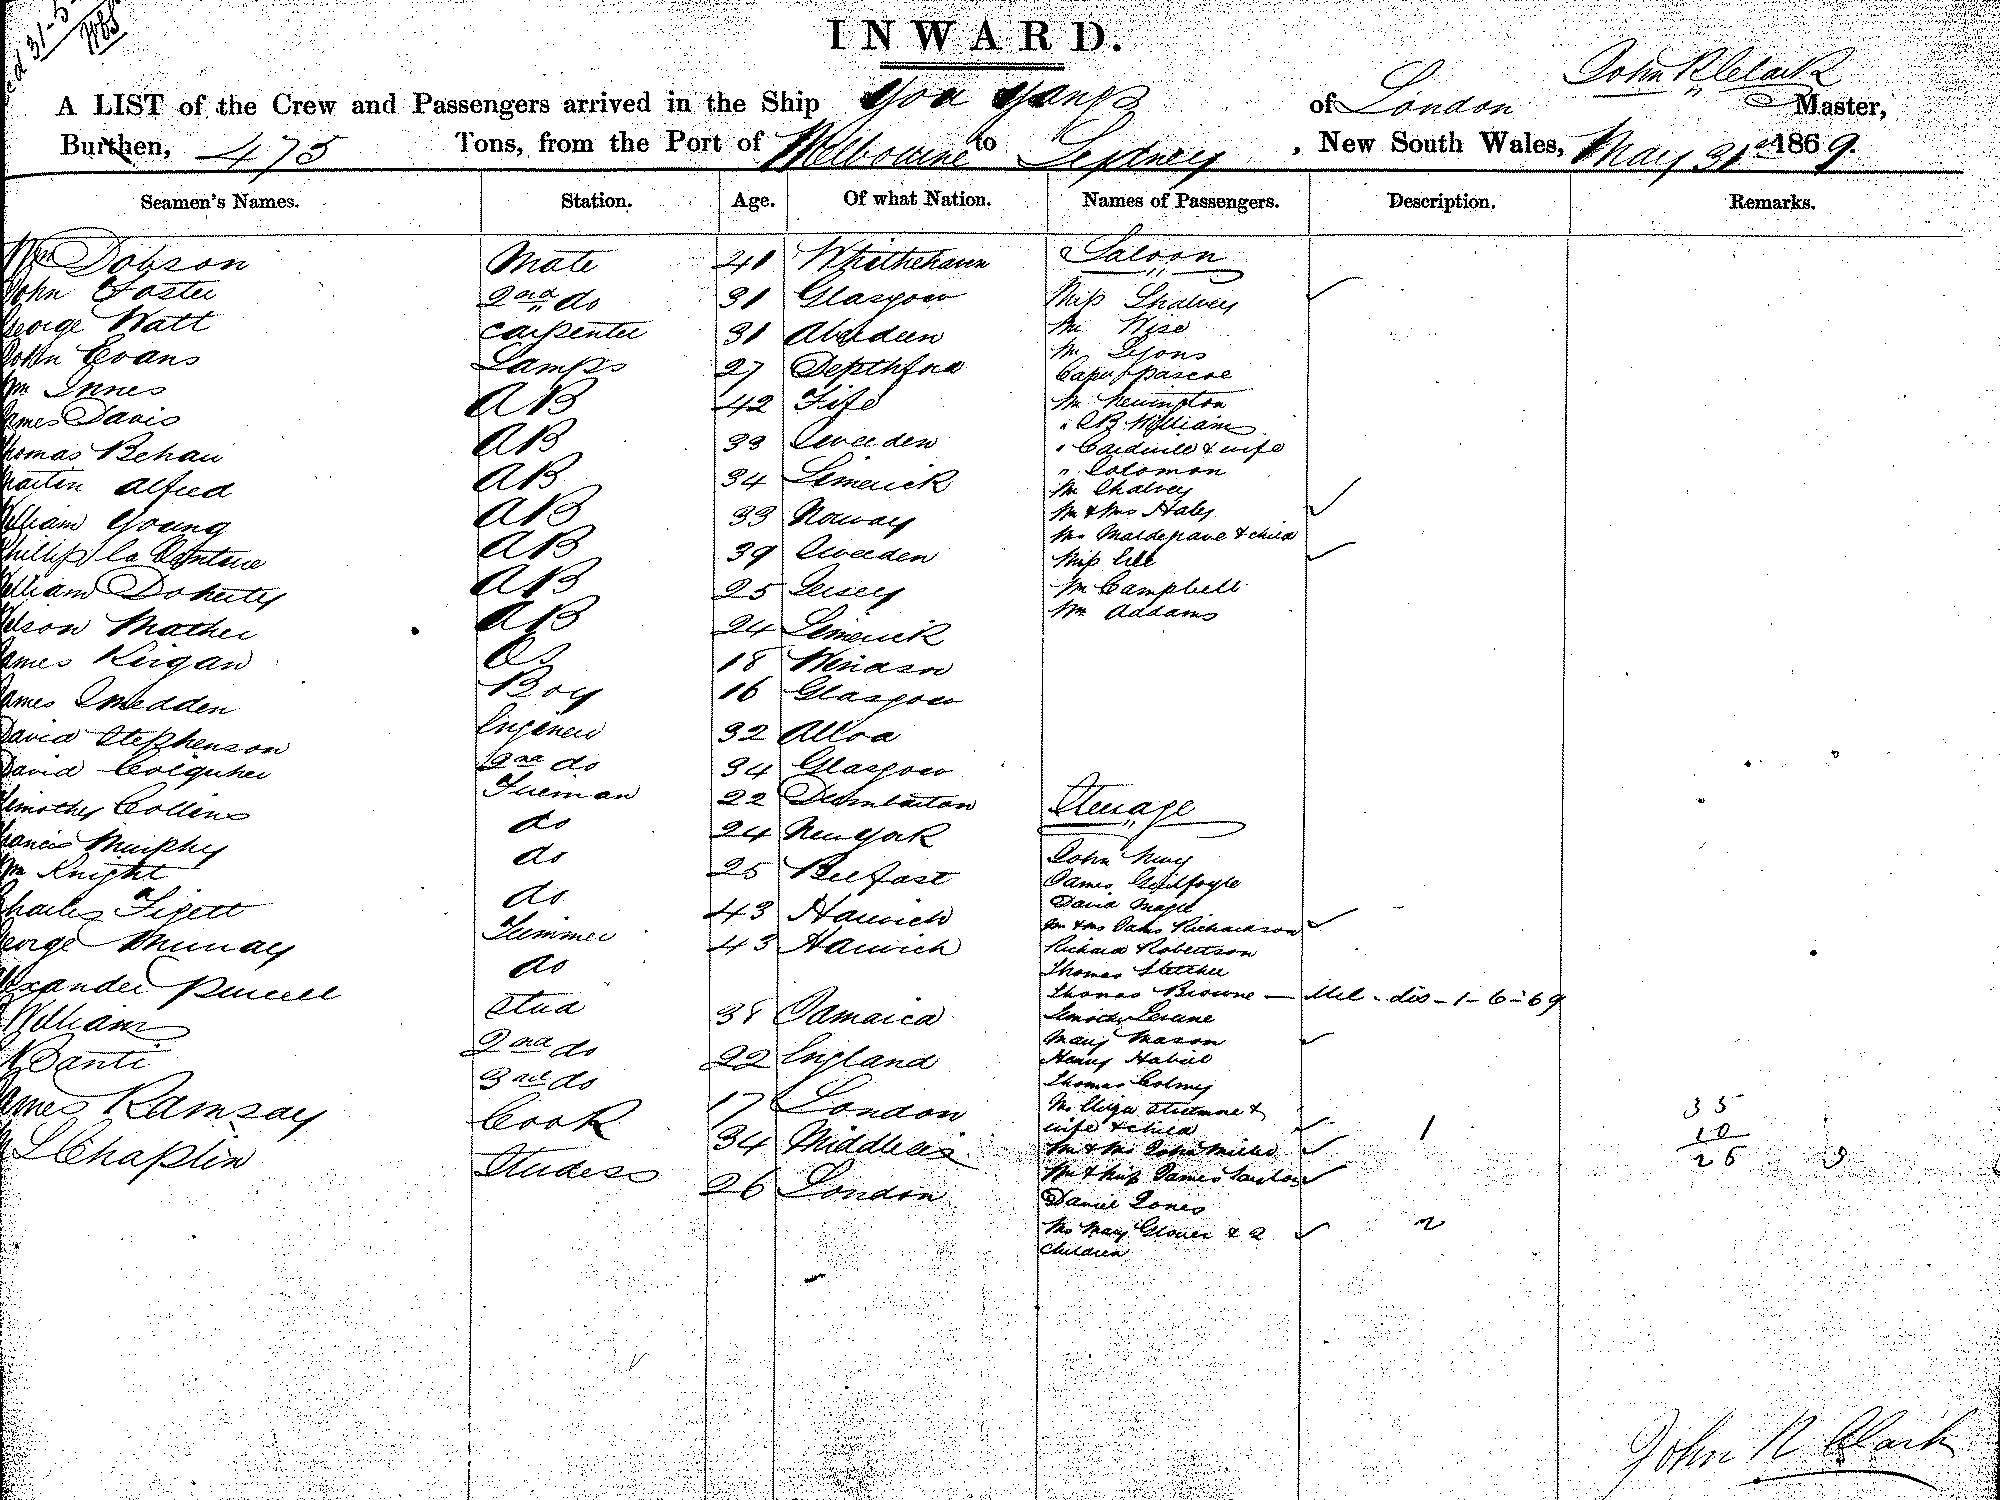 31-5-
INWARD.
John R Clark
A LIST of the Crew and Passengers arrived in the Ship You Yangs of London Master,
Burthen, 475 Tons, from the Port of Melbourne to Sydney, New South Wales, May 31st 1869.
Seamen's Names. Station. Age. Of what Nation. Names of Passengers. Description. Remarks.
Wm Dobson Mate 41 Saloon
John Foster 2nd do 31 Glasgow Miss Shalvey
George Watt Carpenter 31 Aberdeen Mr Wise
John Evans Lamps 27 Depthford Mr Lyons
Capt Pascoe
Wm Innes AB 42 Fife Mr Newington
James Davis AB 33 Sweeden " CB William
" Cardwill & wife
Thomas Behan AB 34 Limerick " Solomon
Martin Alfred AB 33 Norway Mr Shalvey
Mr & Mrs Haley
William Young AB 39 Sweeden Mrs & child
Phillip La AB 25 Jersey Miss
William Doherty AB 24 Limerick Mr Campbell
Mr Addams
Nelson Mather OS 18
James Kirgan Boy 16 Glasgow
James Smedden Engineer 32 Alloa
David Stephenson 2nd do 34 Glasgow
David Fireman 22 Dumbarton Sterrage
Timothy Collins do 24 New York John
Francis Murphy do 25 Belfast James Guilfoyle
Wm Knight do 43 Harwich David Magee
Charles Figett Trimmer 43 Harwich Mr & Mrs Richardson
George Murray do Richard Robertson
Thomas Fletcher
Alexander Purcell Stud 38 Jamaica Thomas Browne - Mel - dis - 1-6-69
Williams 2nd do 22 England Timothy
Mary Mason
Banti 3rd do 17 London Henry
Thomas
James Ramsay Cook 34 Middlesex Mr &
wife & child 1 35
L Chaplin Studess 26 London Mr & Mrs John 10
Mr & Miss James 26
Daniel Jones
Mrs Mary Glover & 2 2
Children
John R Clark